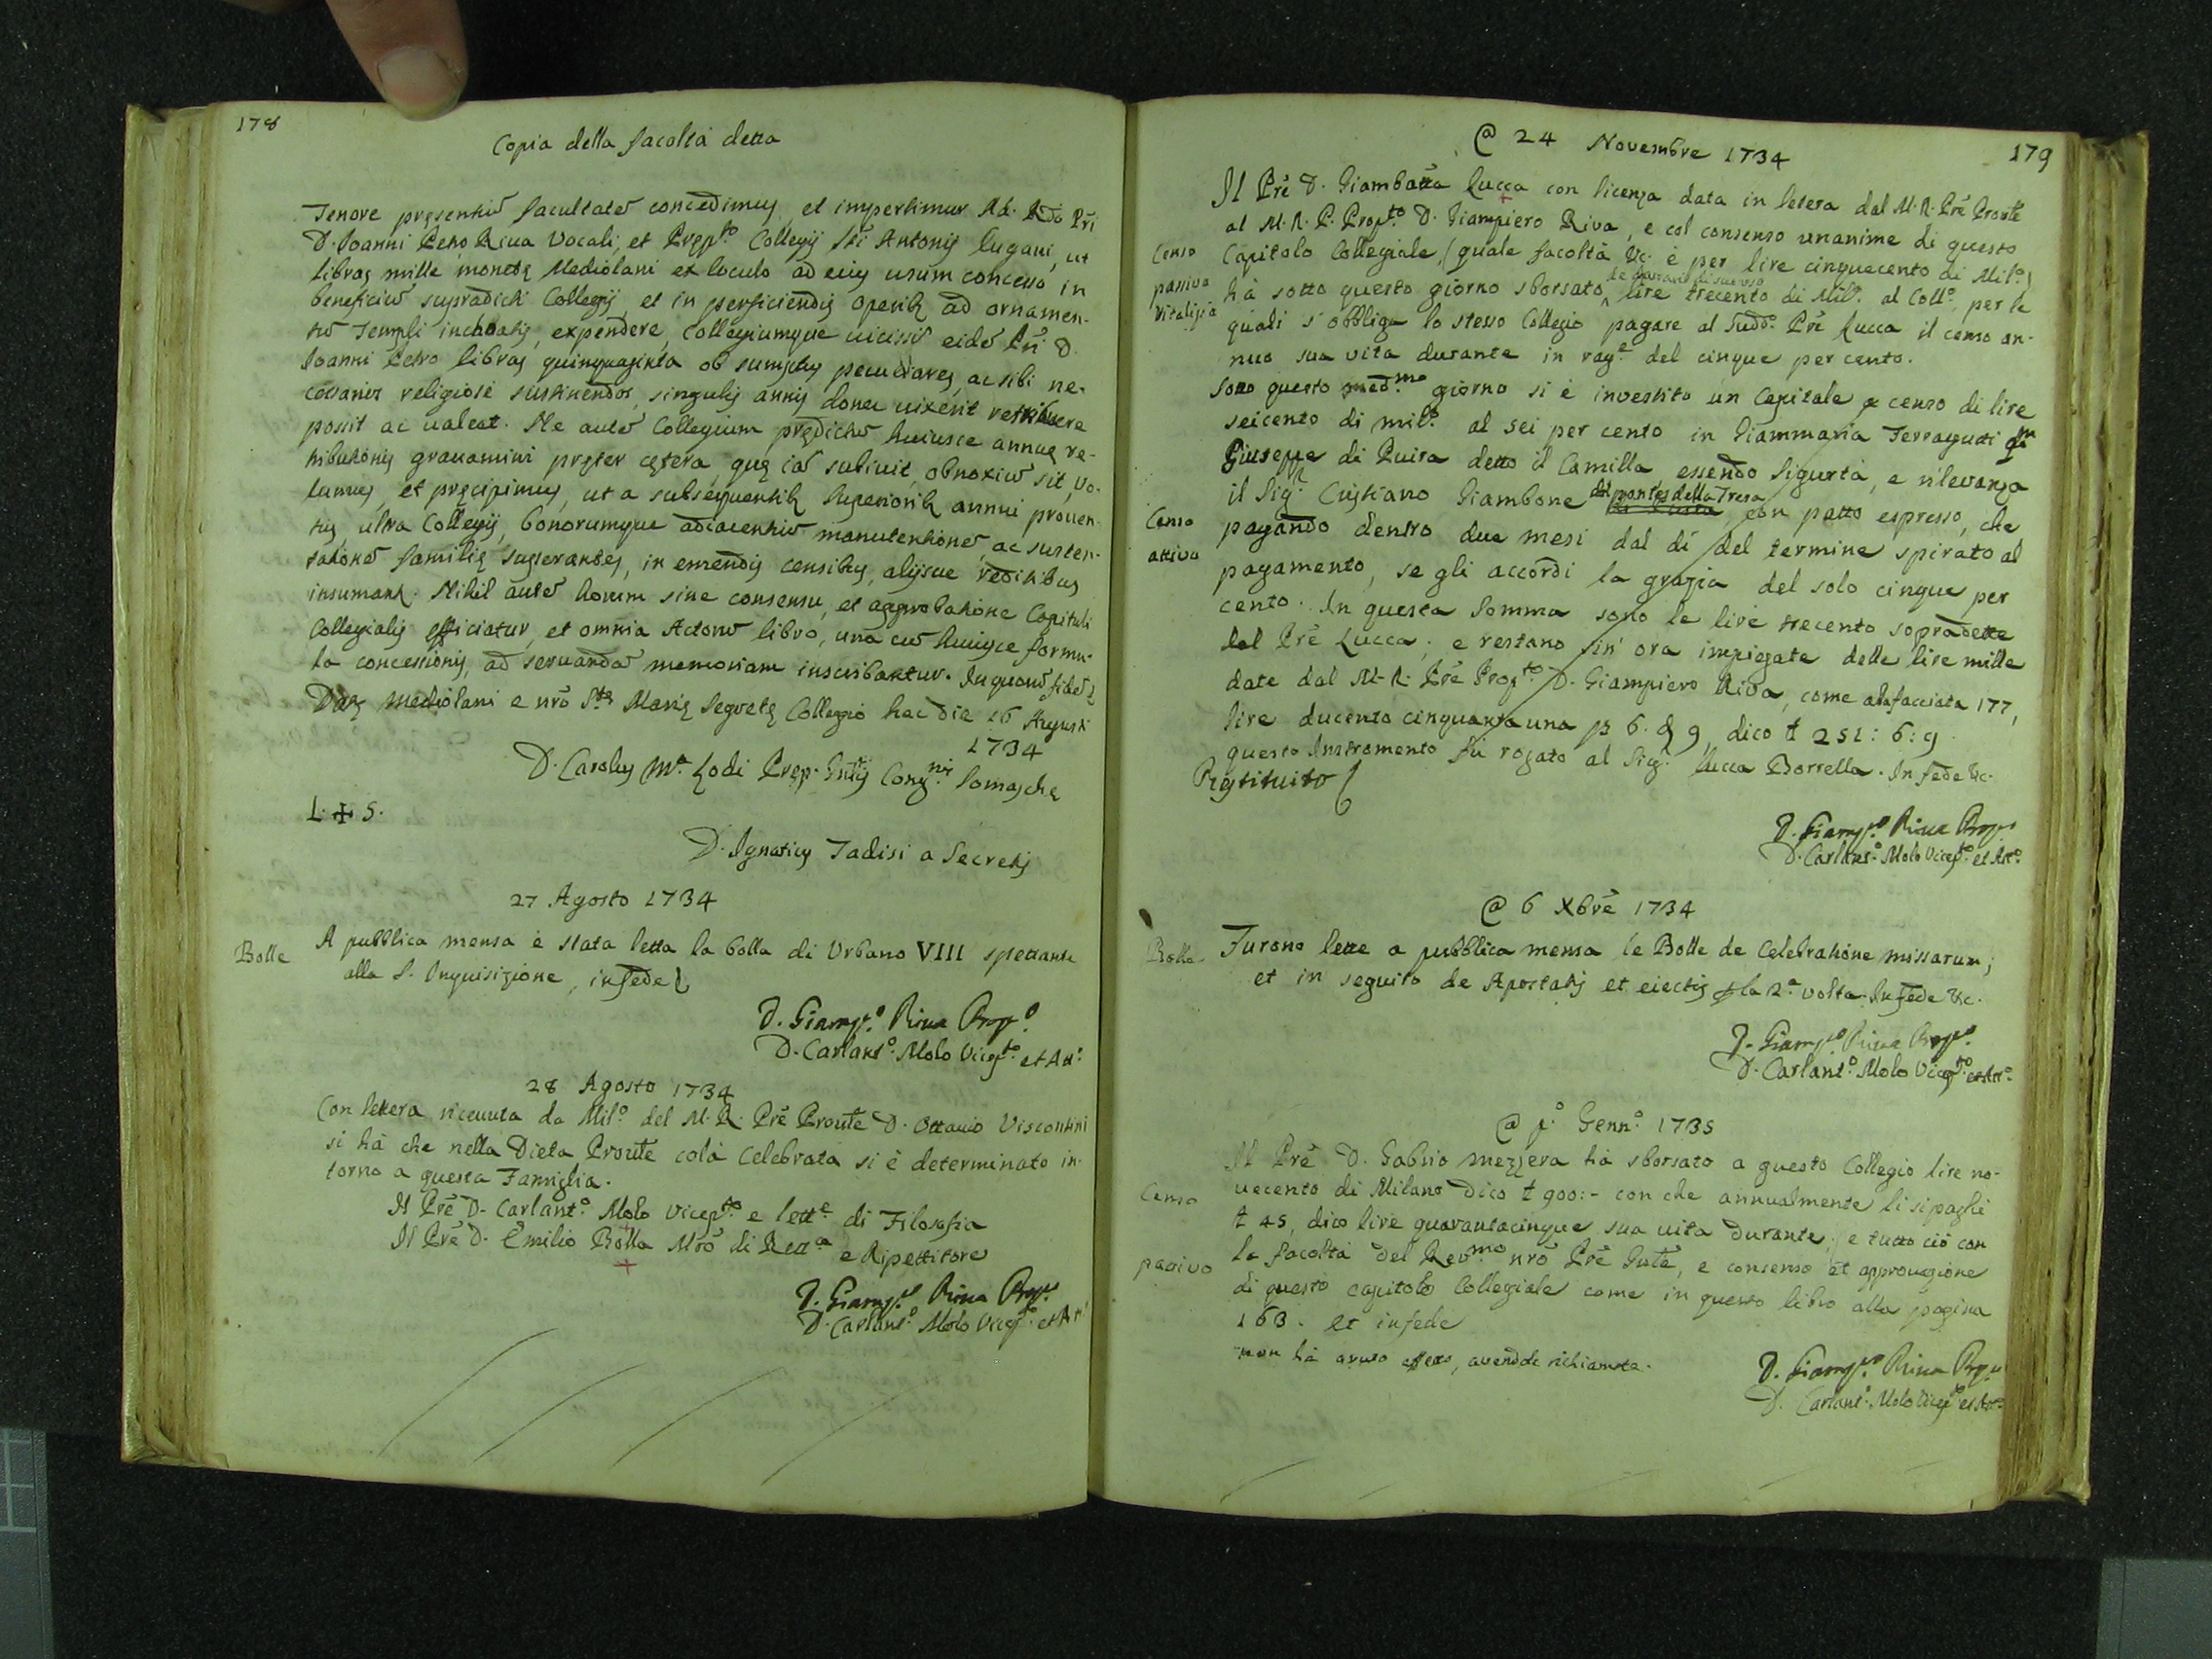 178
Copia della facoltà detta
Tenore pręsentiū facultatē concedimus, et impertimur Ad. Rdo Pri
D. Joanni Petro Riva Vocali, et Prępto Collegij Sti Antonij Lugani, ut
libras mille monetę Mediolani ex loculo ad eius usum concesso in
beneficiū supradicti Collegij, et in perficiendis operib9 ad ornamen-
tū Templi inchoatis, expendere, Collegiumque vicissī eidē Pri D.
Joanni Petro libras quinquaginta ob sumptus peculiares, ac sibi ne-
cessarios religiose sustinendos, singulis annis donec vixerit retribuere
possit ac valeat. Ne autē Collegium prędictū huiusce annuę re-
tributionis gravamini pręter cętera, quę iā subivit, obnoxiū sit, vo-
lumus, et pręcipimus, ut a subsequentib9 Superiorib9 annui proven-
tus, ultra Collegij, bonorumque adiacentiū manutentionē, ac susten-
tationē familię superantes, in emendis censibus, alijsue redditibus
insumant. Nihil autē horum sine consensu, et approbatione Capituli
Collegialis efficiatur, et omnia Actorū libro, una cū huiusce formu-
la concessionis, ad servandā memoriam inscribantur. In quorū fidē
Datę Mediolani e nrō Stę Marię Segretę Collegio hac die 16 Augusti
1734
D. Carolus Ma. Lodi Pręp. Gnlis Congnis Somaschę
L ✠ S.
D. Ignatius Tadisi a Secretis
27 Agosto 1734
Bolle
A pubblica mensa è stata letta la bolla di Urbano VIII spettante
alla S. Inquisizione, in fede
D. Giampo. Riva Propo.
D. Carlanto. Molo Vicepto. et Atto.
28 Agosto 1734
Con lettera ricevuta da Milo. del M. R. Prē Pronte D. Ottavio Viscontini
si hà che nella Dieta Pronte colà Celebrata si è determinato in-
torno a questa Famiglia.
Il Prē D. Carlanto. Molo Vicepto. e Lette. di Filosofia
Il Prē D. Emilio Bolla Mrō di Retta. e Ripetitore
D. Giampo. Riva Propo.
D. Carlanto. Molo Vicepto. et Atto.
179
@ 24 Novembre 1734
Il Prē D. Giambatta Lucca con licenza data in letera dal M. R. Prē Pronte
al M. R. P. Propto. D. Giampiero Riva, e col consenso unanime di questo
Censo
Capitolo Collegiale, (quale facoltà &c. è per lire cinquecento di Milo.)
passivo
hà sotto questo giorno sborsato lire trecento di Milo. al Collo. per le
Vitalizio
quali s'obbliga lo stesso Collegio pagare al Suddo. Prē Lucca il censo an-
nuo sua vita durante in rage. del cinque per cento.
Sotto questo medmo giorno si è investito un Capitale a censo di lire
seicento di milo. al sei per cento in Giammaria Ferragutti qm
Giuseppe di Puira detto il Camilla essendo sigurtà, e rilevanza
il Sigr. Cristiano Giambone dal ponte della Tresa con patto espresso, che
Censo
attivo
pagando dentro due mesi dal dì del termine spirato al
pagamento, se gli accordi la grazia del solo cinque per
cento. In questa Somma sono le lire trecento sopradette
del Prē Lucca; e restano sin' ora impiegate delle lire mille
date dal M. R. Prē Propto. D. Giampiero Riva, come alla facciata 177,
lire ducento cinquanta una ps 6. & 9, dico ł 251: 6: 9.
questo Instromento fu rogato al Sig. Lucca Borrella. In fede &c.
Restituito
D. Giampo. Riva Propo.
D. Carlanto. Molo Vicepto. et Atto.
@ 6 Xbrē 1734
Bolle.
Furono lette a pubblica mensa le Bolle de Celebratione missarum;
et in seguito de Apostatis et eiectis p la 2a. volta. In fede &c.
D. Giampo. Riva Propo.
D. Carlanto. Molo Vicepto. et Atto.
@ po. Genno. 1735
Il Prē D. Gabrio Mezzera hà sborsato a questo Collegio lire no-
Censo
vecento di Milano dico ł 900:- con che annualmente li si paghi
ł 45, dico lire quarantacinque sua vita durante; e tutto ciò con
passivo
la facoltà del Revmo. nrō Prē Gnle, e consenso et approvazione
di questo capitolo Collegiale come in questo libro alla pagina
163. et in fede
non hà avuto effetto, avendole richiamate.
D. Giampo. Riva Propo.
D. Carlanto. Molo Vicepto. et Atto.